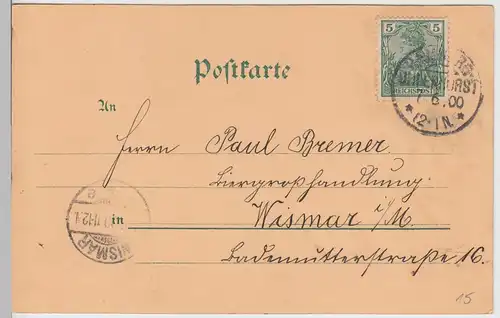 Postkarte
5 5
REICHSPOST
UHLENHORST
6.00
*12-1N.*
An
Herrn Paul Bremer
Biergroßhandlung
in Wismar i/M.
Bademutterstraße 16.
WISMAR
15